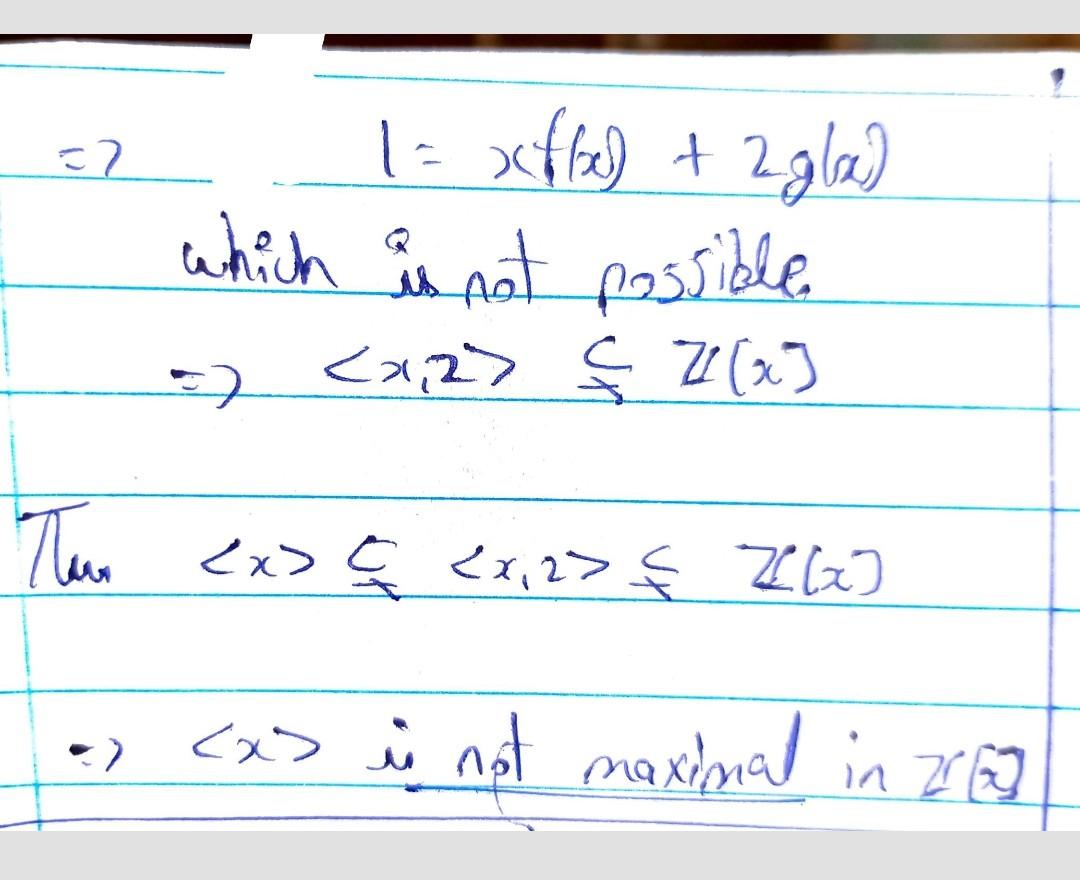 => 1 = xf(x) + 2g(x)
which is not possible.
=> <x,2> ⊊ ℤ[x]
Thus <x> ⊊ <x,2> ⊊ ℤ[x]
=> <x> is not maximal in ℤ[x]